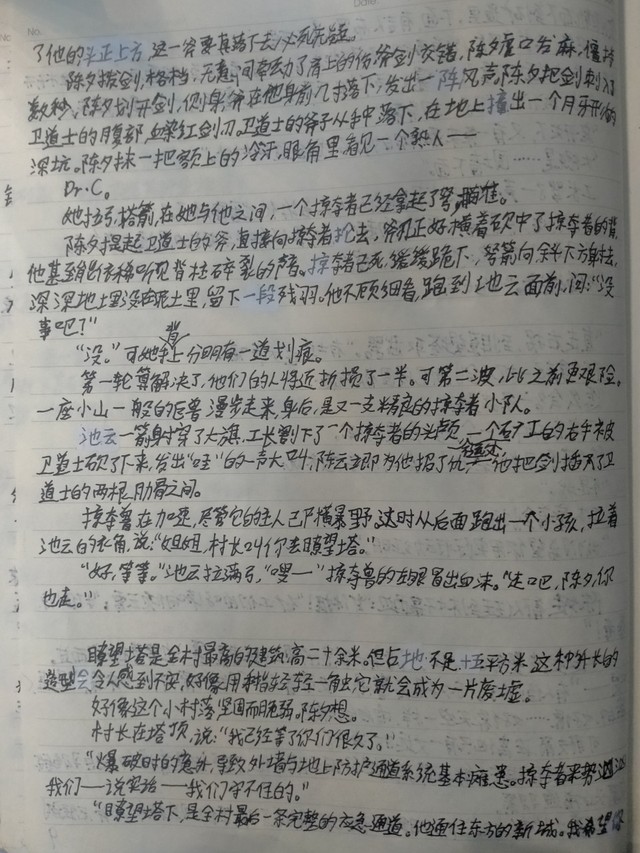 了他的头正上方,这一斧要真落下去必死无疑。
陈夕拔剑,格档,无意间牵动了肩上的伤,斧剑交错,陈夕虎口发麻,僵持
数秒,陈夕划开剑,侧身,斧在他身前几寸落下,发出一阵风声,陈夕把剑刺入了
卫道士的腹部,血染红剑刃,卫道士的斧子从手中落下,在地上撞出一个月牙形的
深坑。陈夕抹一把额上的冷汗,眼角里看见一个熟人——
Dr·C。
她拉弓,搭箭,在她与他之间,一个掠夺者已经拿起了弩,瞄准。
陈夕提起卫道士的斧,直接向掠夺者抡去,斧刃正好横着砍中了掠夺者的背,
他甚至能依稀听见脊柱碎裂的声音。掠夺者已死,缓缓跪下,弩箭向斜下方射去,
深深地土里没入土里,留下一段残羽。他不顾细看,跑到池云面前,问:“没
事吧?”
“没。”可她背上分明有一道划痕。
第一轮算解决了,他们的人将近折损了一半。可第二波,比之前更艰险。
一座小山一般的巨兽漫步走来,身后,是又一支精良的掠夺者小队。
池云一箭射穿了大旗,工长割下了一个掠夺者的头颅,一个矿工的右手被
卫道士砍了下来,发出“哇”的一声大叫,陈云立即为他报了仇,他把剑插入了卫
道士的两根肋骨之间。
掠夺兽在加速,尽管它的主人已尸横暴野,这时从后面跑出一个小孩,拉着
池云的衣角,说:“姐姐,村长叫你去瞭望塔。”
“好,等等。”池云拉满弓,“嗖——”掠夺兽的左眼冒出血沫。“走吧,陈夕,你
也走。”
瞭望塔是全村最高的建筑,高二十余米。但占地不足十五平方米,这种外长的
造型会令人感到不安,好像用手指轻轻一触,它就会成为一片废墟。
好像这个小村落,坚固而脆弱。陈夕想。
村长在塔顶,说:“我已经等了你们很久了。”
“爆破时的意外,导致外墙与地上防护通道系统基本瘫患。掠夺者来势汹汹
我们——说实话——我们守不住的。”
“瞭望塔下,是全村最后一条完整的应急通道。他通往东方的新城。我希望